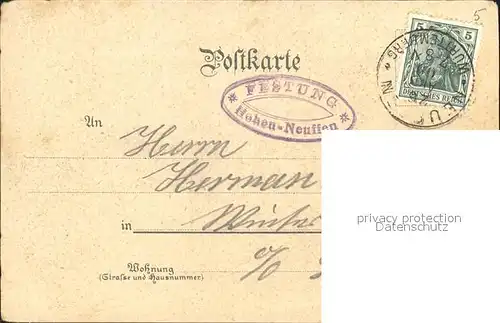 5
5 5
DEUTSCHES REICH
WÜRTTEMBERG
Postkarte
FESTUNG
Hohen-Neuffen
An
Herrn
Herman
in Winter
privacy protection
Datenschutz
Wohnung
(Straße und Hausnummer)